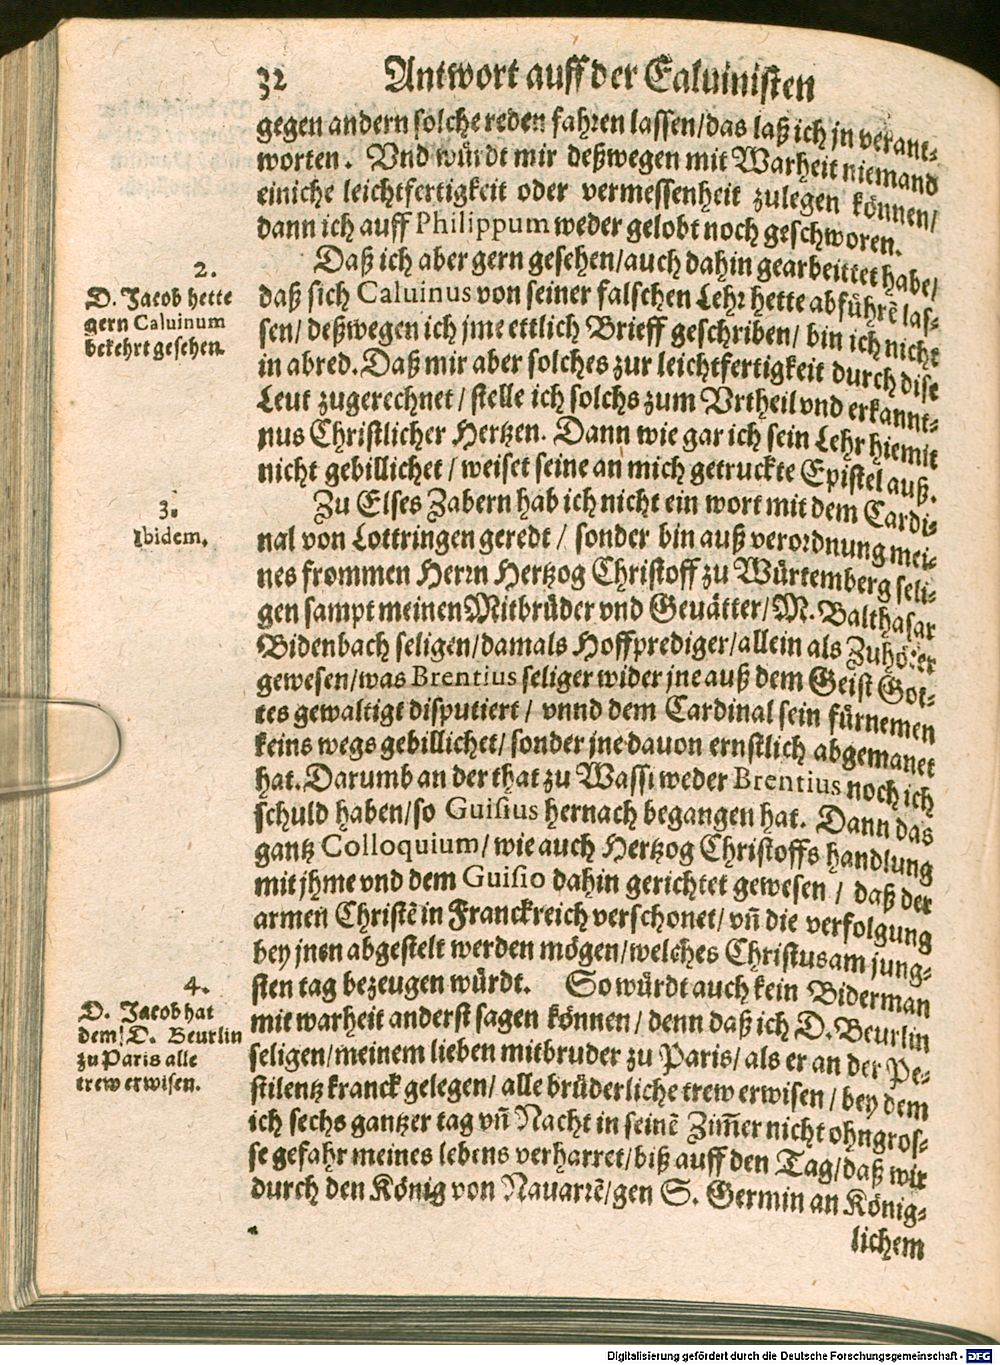 32 Antwort auff der Caluinisten
gegen andern solche reden fahren lassen/das laß ich jn verant⸗
worten. Vnd würdt mir deßwegen mit Warheit niemand
einiche leichtfertigkeit oder vermessenheit zulegen können/
dann ich auff Philippum weder gelobt noch geschworen.
2.
D. Jacob hette
gern Caluinum
bekehrt gesehen.
Daß ich aber gern gesehen/auch dahin gearbeittet habe/
daß sich Caluinus von seiner falschen Lehr hette abführẽ las⸗
sen/ deßwegen ich jme ettlich Brieff geschriben/ bin ich nicht
in abred. Daß mir aber solches zur leichtfertigkeit durch dise
Leut zugerechnet/ stelle ich solchs zum Vrtheil vnd erkannt⸗
nus Christlicher Hertzen. Dann wie gar ich sein Lehr hiemit
nicht gebillichet/ weiset seine an mich getruckte Epistel auß.
3.
Ibidem.
Zu Elses Zabern hab ich nicht ein wort mit dem Cardi⸗
nal von Lottringen geredt/ sonder bin auß verordnung mei⸗
nes frommen Herrn Hertzog Christoff zu Würtemberg seli⸗
gen sampt meinen Mitbrüder vnd Geuätter/ M. Balthasar
Bidenbach seligen/damals Hoffprediger/allein als Zuhörer
gewesen/was Brentius seliger wider jne auß dem Geist Got⸗
tes gewaltigt disputiert/ vnnd dem Cardinal sein fürnemen
keins wegs gebillichet/ sonder jne dauon ernstlich abgemanet
hat. Darumb an der that zu Wassi weder Brentius noch ich
schuld haben/so Guisius hernach begangen hat. Dann das
gantz Colloquium/ wie auch Hertzog Christoffs handlung
mit jhme vnd dem Guisio dahin gerichtet gewesen/ daß der
armen Christẽ in Franckreich verschonet/ vñ die verfolgung
bey jnen abgestelt werden mögen/welches Christus am jung⸗
sten tag bezeugen würdt. So würdt auch kein Biderman
4.
D. Jacob hat
dem D. Beurlin
zu Paris alle
trew erwisen.
mit warheit anderst sagen können/ denn daß ich D. Beurlin
seligen/meinem lieben mitbruder zu Paris/ als er an der Pe⸗
stilentz kranck gelegen/ alle brüderliche trew erwisen/ bey dem
ich sechs gantzer tag vñ Nacht in seinẽ Zim̃er nicht ohn gros⸗
se gefahr meines lebens verharret/biß auff den Tag/daß wir
durch den König von Nauarrẽ/gen S. Germin an König⸗
lichem
Digitalisierung gefördert durch die Deutsche Forschungsgemeinschaft - DFG